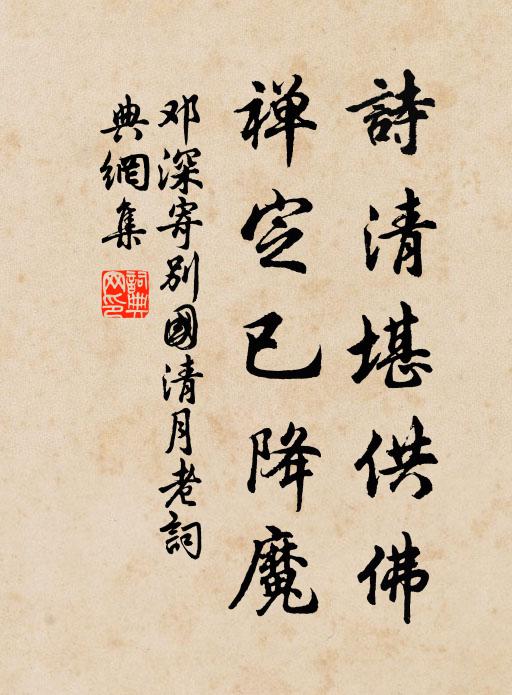 詩清堪供佛
禅定已降魔
邓深寄别國清月老詞
典網集
詞典
网印